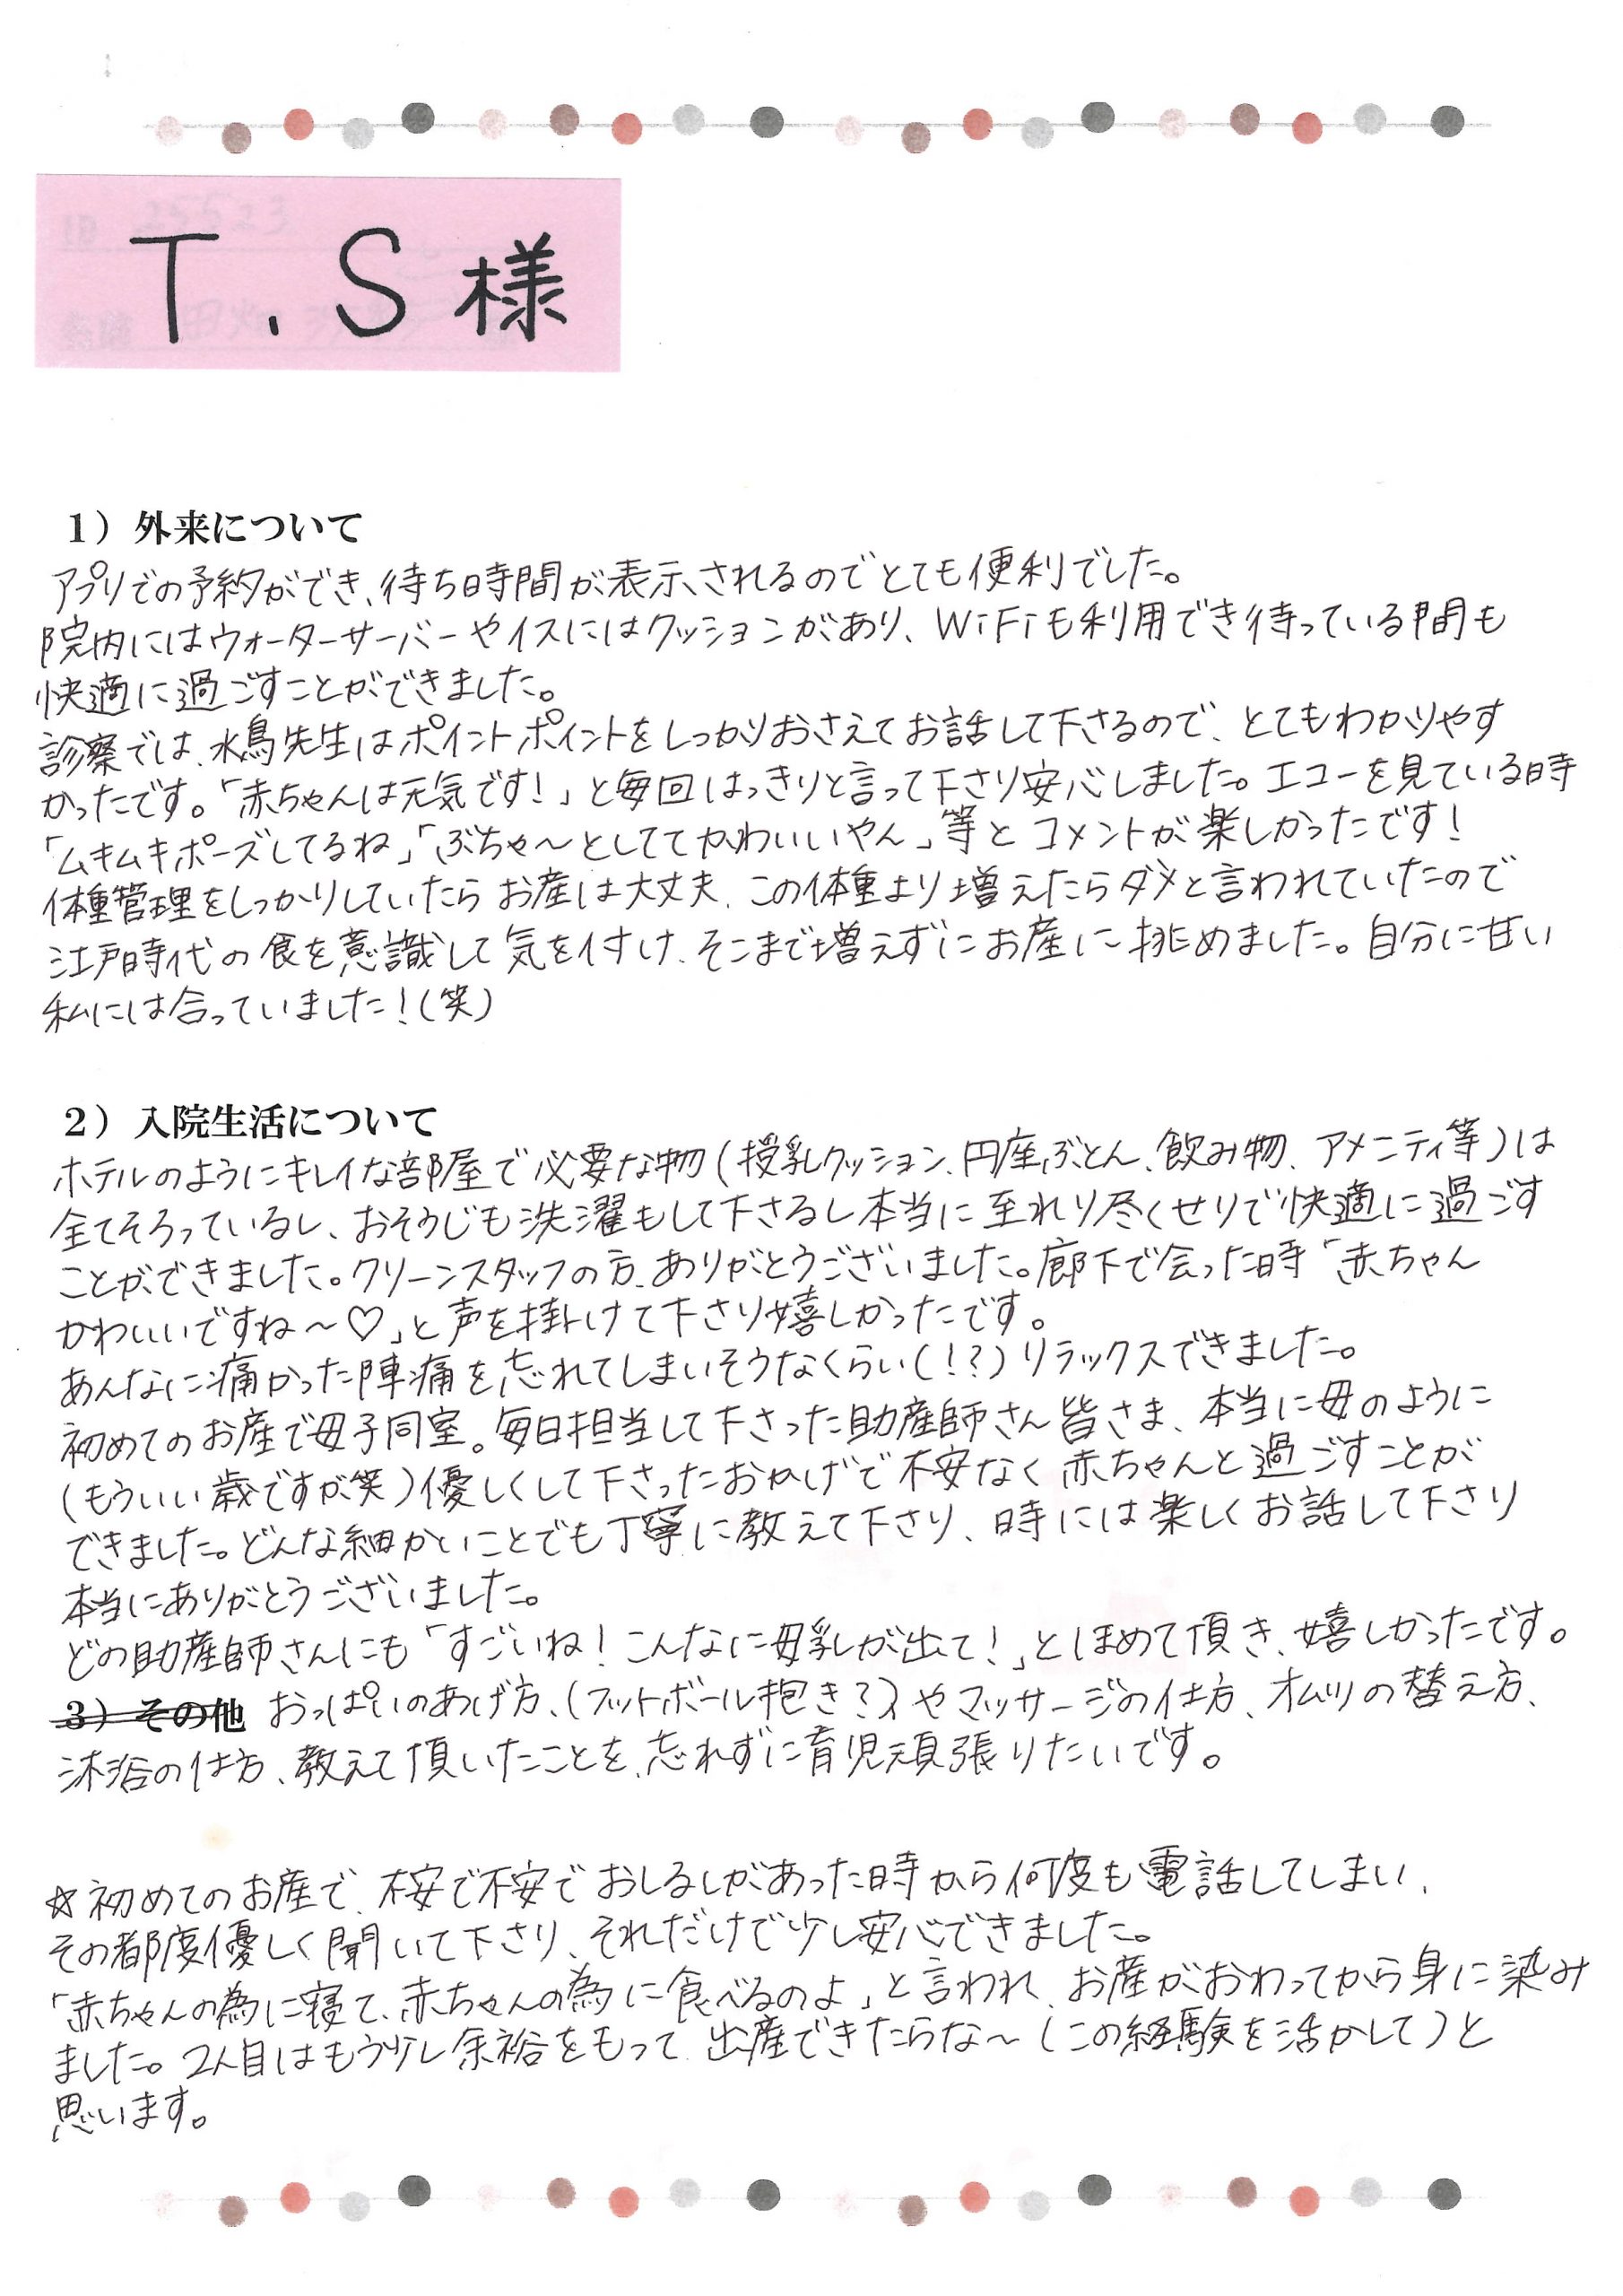 T.S様
1）外来について
アプリでの予約ができ、待ち時間が表示されるのでとても便利でした。
院内にはウォーターサーバーやイスにはクッションがあり、WiFiも利用でき待っている間も
快適に過ごすことができました。
診察では、水鳥先生はポイントポイントをしっかりおさえてお話して下さるので、とてもわかりやす
かったです。「赤ちゃんは元気です！」と毎回はっきりと言って下さり安心しました。エコーを見ている時
「ムキムキポーズしてるね」「ぶちゃ〜としててかわいいやん」等とコメントが楽しかったです！
体重管理をしっかりしていたらお産は大丈夫、この体重より増えたらダメと言われていたので
江戸時代の食を意識して気を付け、そこまで増えずにお産に挑めました。自分に甘い
私には合っていました！(笑)
2）入院生活について
ホテルのようにキレイな部屋で必要な物(授乳クッション、円座ぶとん、飲み物、アメニティ等)は
全てそろっているし、おそうじも洗濯もして下さるし本当に至れり尽くせりで快適に過ごす
ことができました。クリーンスタッフの方、ありがとうございました。廊下で会った時「赤ちゃん
かわいいですね〜♡」と声を掛けて下さり嬉しかったです。
あんなに痛かった陣痛を忘れてしまいそうなくらい(！？)リラックスできました。
初めてのお産で母子同室。毎日担当して下さった助産師さん皆さま、本当に母のように
(もういい歳ですが笑)優しくして下さったおかげで不安なく赤ちゃんと過ごすことが
できました。どんな細かいことでも丁寧に教えて下さり、時には楽しくお話して下さり
本当にありがとうございました。
どの助産師さんにも「すごいね！こんなに母乳が出て！」とほめて頂き、嬉しかったです。
3）その他 おっぱいのあげ方、(フットボール抱き？)やマッサージの仕方、オムツの替え方、
沐浴の仕方、教えて頂いたことを、忘れずに育児頑張りたいです。
☆初めてのお産で、不安で不安でおしるしがあった時から何度も電話してしまい、
その都度優しく聞いて下さり、それだけで少し安心できました。
「赤ちゃんの為に寝て、赤ちゃんの為に食べるのよ」と言われ、お産がおわってから身に染み
ました。2人目はもう少し余裕をもって、出産できたらな〜(この経験を活かして)と
思います。